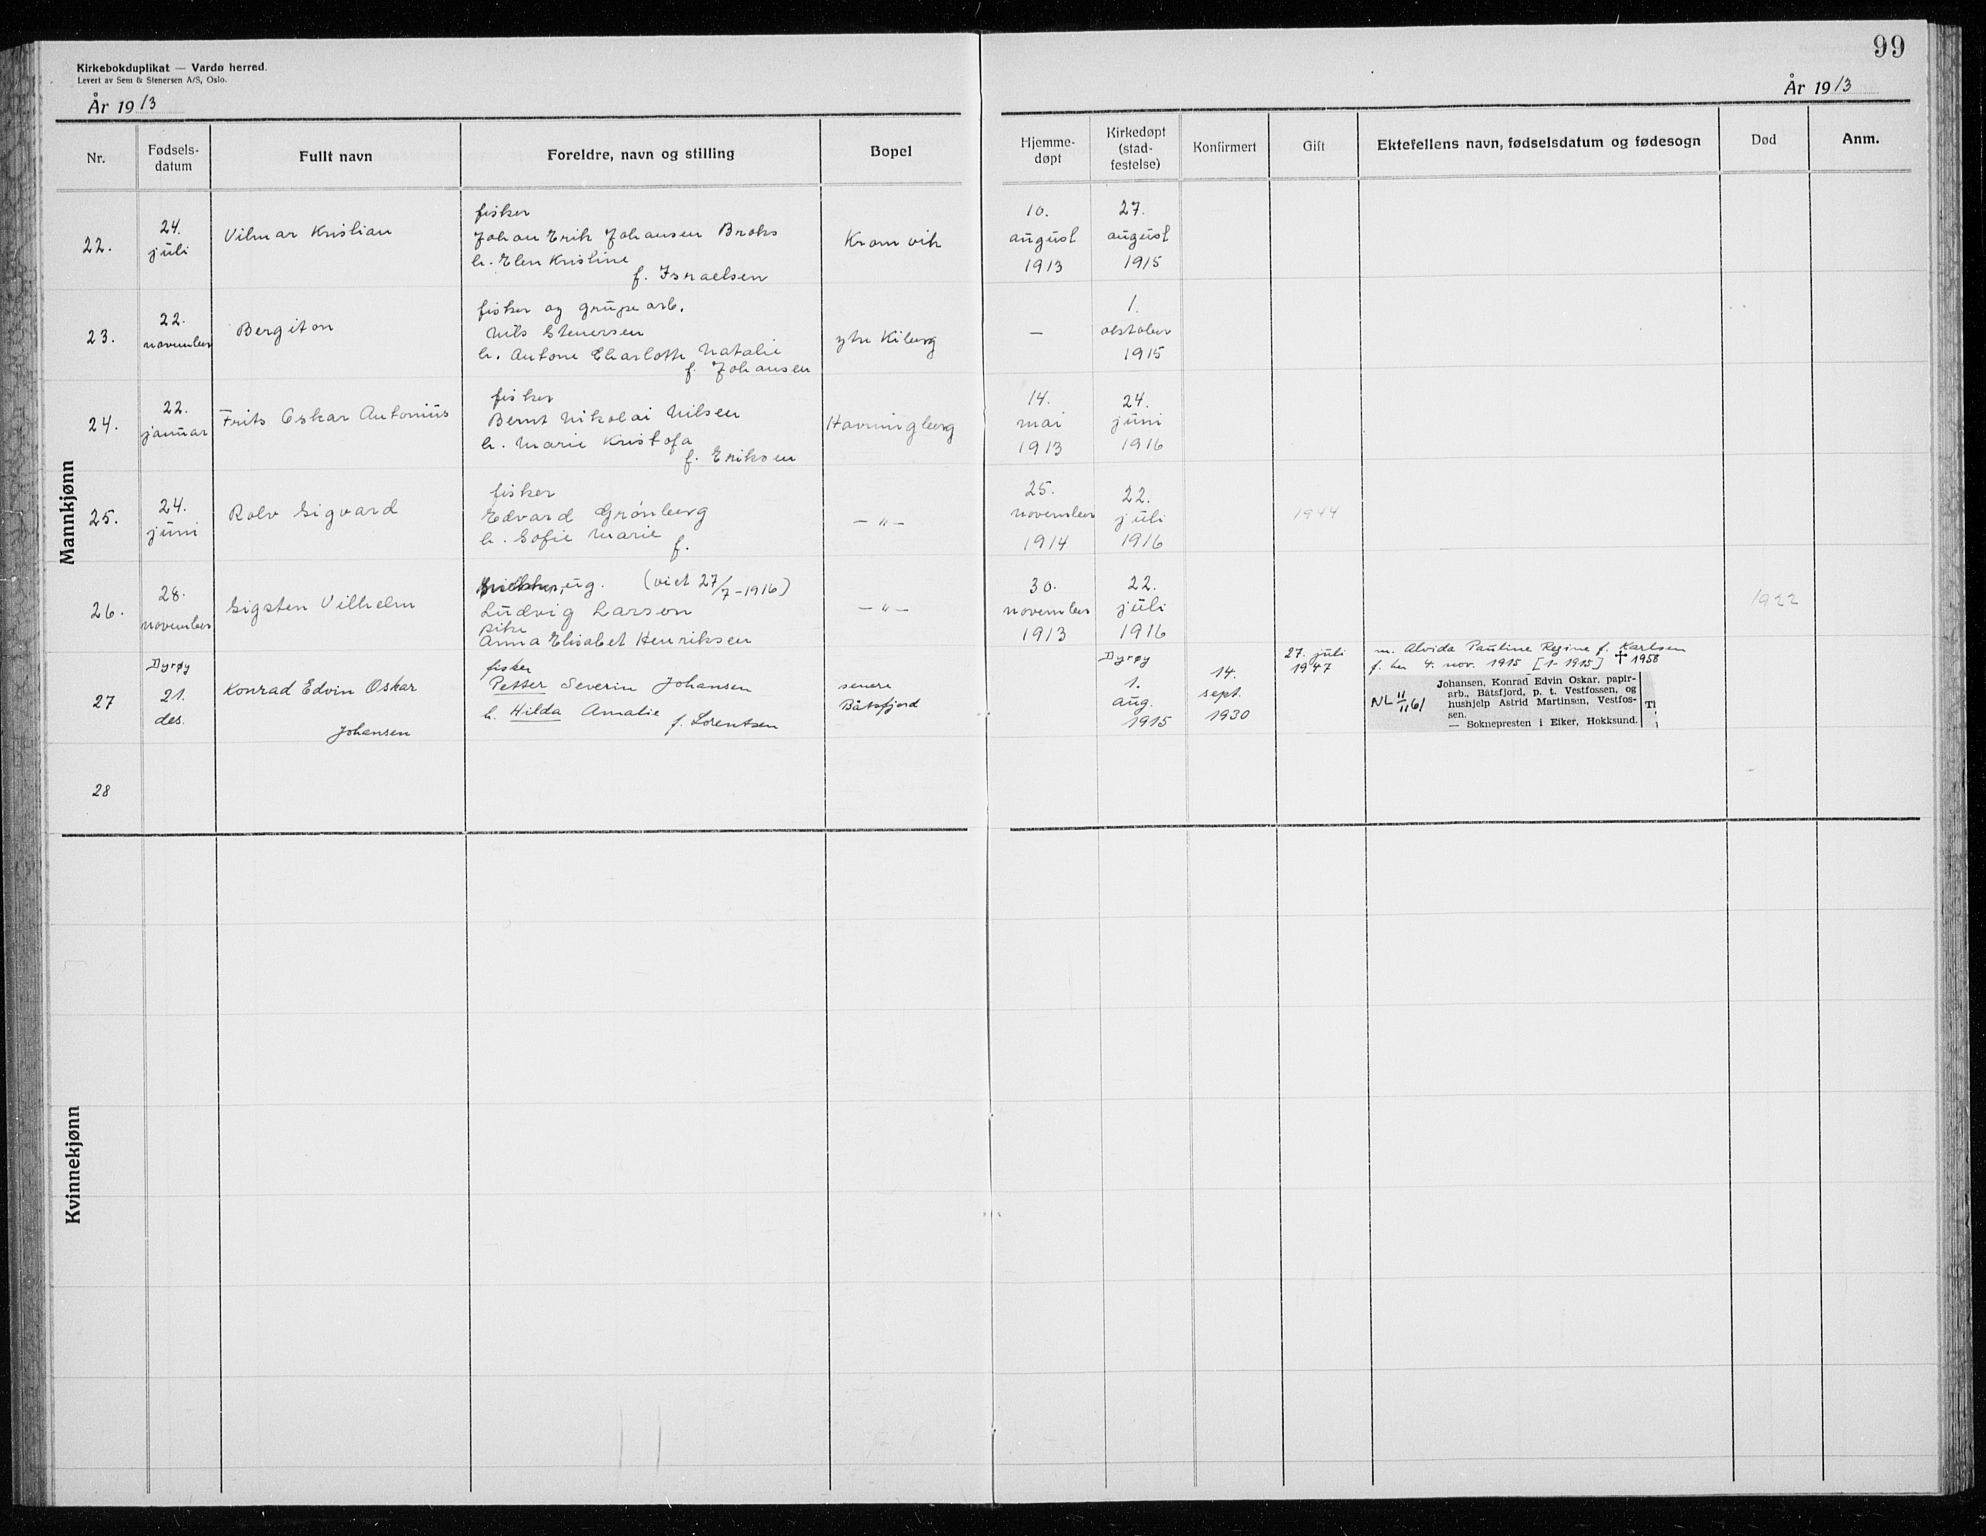 99
Kirkebokduplikat — Vardø herred.
Levert av Sem & Stenersen A/S, Oslo.
År 1913
År 1913
Nr.
Fødsels-
datum
Fullt navn
Foreldre, navn og stilling
Bopel
Hjemme-
døpt
Kirkedøpt
(stad-
festelse)
Konfirmert
Gift
Ektefellens navn, fødselsdatum og fødesogn
Død
Anm.
Mannkjønn
22.
24.
juli
Vilmar Kristian
fisker
Johan Erik Johansen Broks
h. Elen Kristine
f. Israelsen
Kramvik
10.
august
1913
27.
august
1915
23.
22.
november
Bergiton
fisker og grupearb.
Nils Stenersen
h. Antone Charlotte Natalie
f. Johansen
ytre Kiberg
—
1.
oktober
1915
24.
22.
januar
Frits Oskar Antonius
fisker
Bernt Nikolai Nilsen
h. Marie Kristofa
f. Eriksen
Havningberg
14.
mai
1913
24.
juni
1916
25.
24.
juni
Rolv Sigvard
fisker
Edvard Grønberg
h. Sofie Marie
f.
— " —
25.
november
1914
22.
juli
1916
1944
26.
28.
november
Sigsten Vilhelm
ug. (viet 27/7-1916)
Ludvig Larson
pike
Anna Elisabet Henriksen
— " —
30.
november
1913
22.
juli
1916
1922
27
Dyrøy
21.
des.
Konrad Edvin Oskar
Johansen
fisker
Petter Severin Johansen
h. Hilda Amalie
f. Lorentsen
senere
Båtsfjord
Dyrøy
1.
aug.
1915
14.
sept.
1930
27. juli
1947
m. Alvida Pauline Regine f. Karlsen
f. her 4. nov. 1915 [1-1915] † 1958
NL 11/11 61
Johansen, Konrad Edvin Oskar, papir-
arb., Båtsfjord, p. t. Vestfossen, og
hushjelp Astrid Martinsen, Vestfos-
sen.
— Soknepresten i Eiker, Hokksund.
Tl
28
Kvinnekjønn